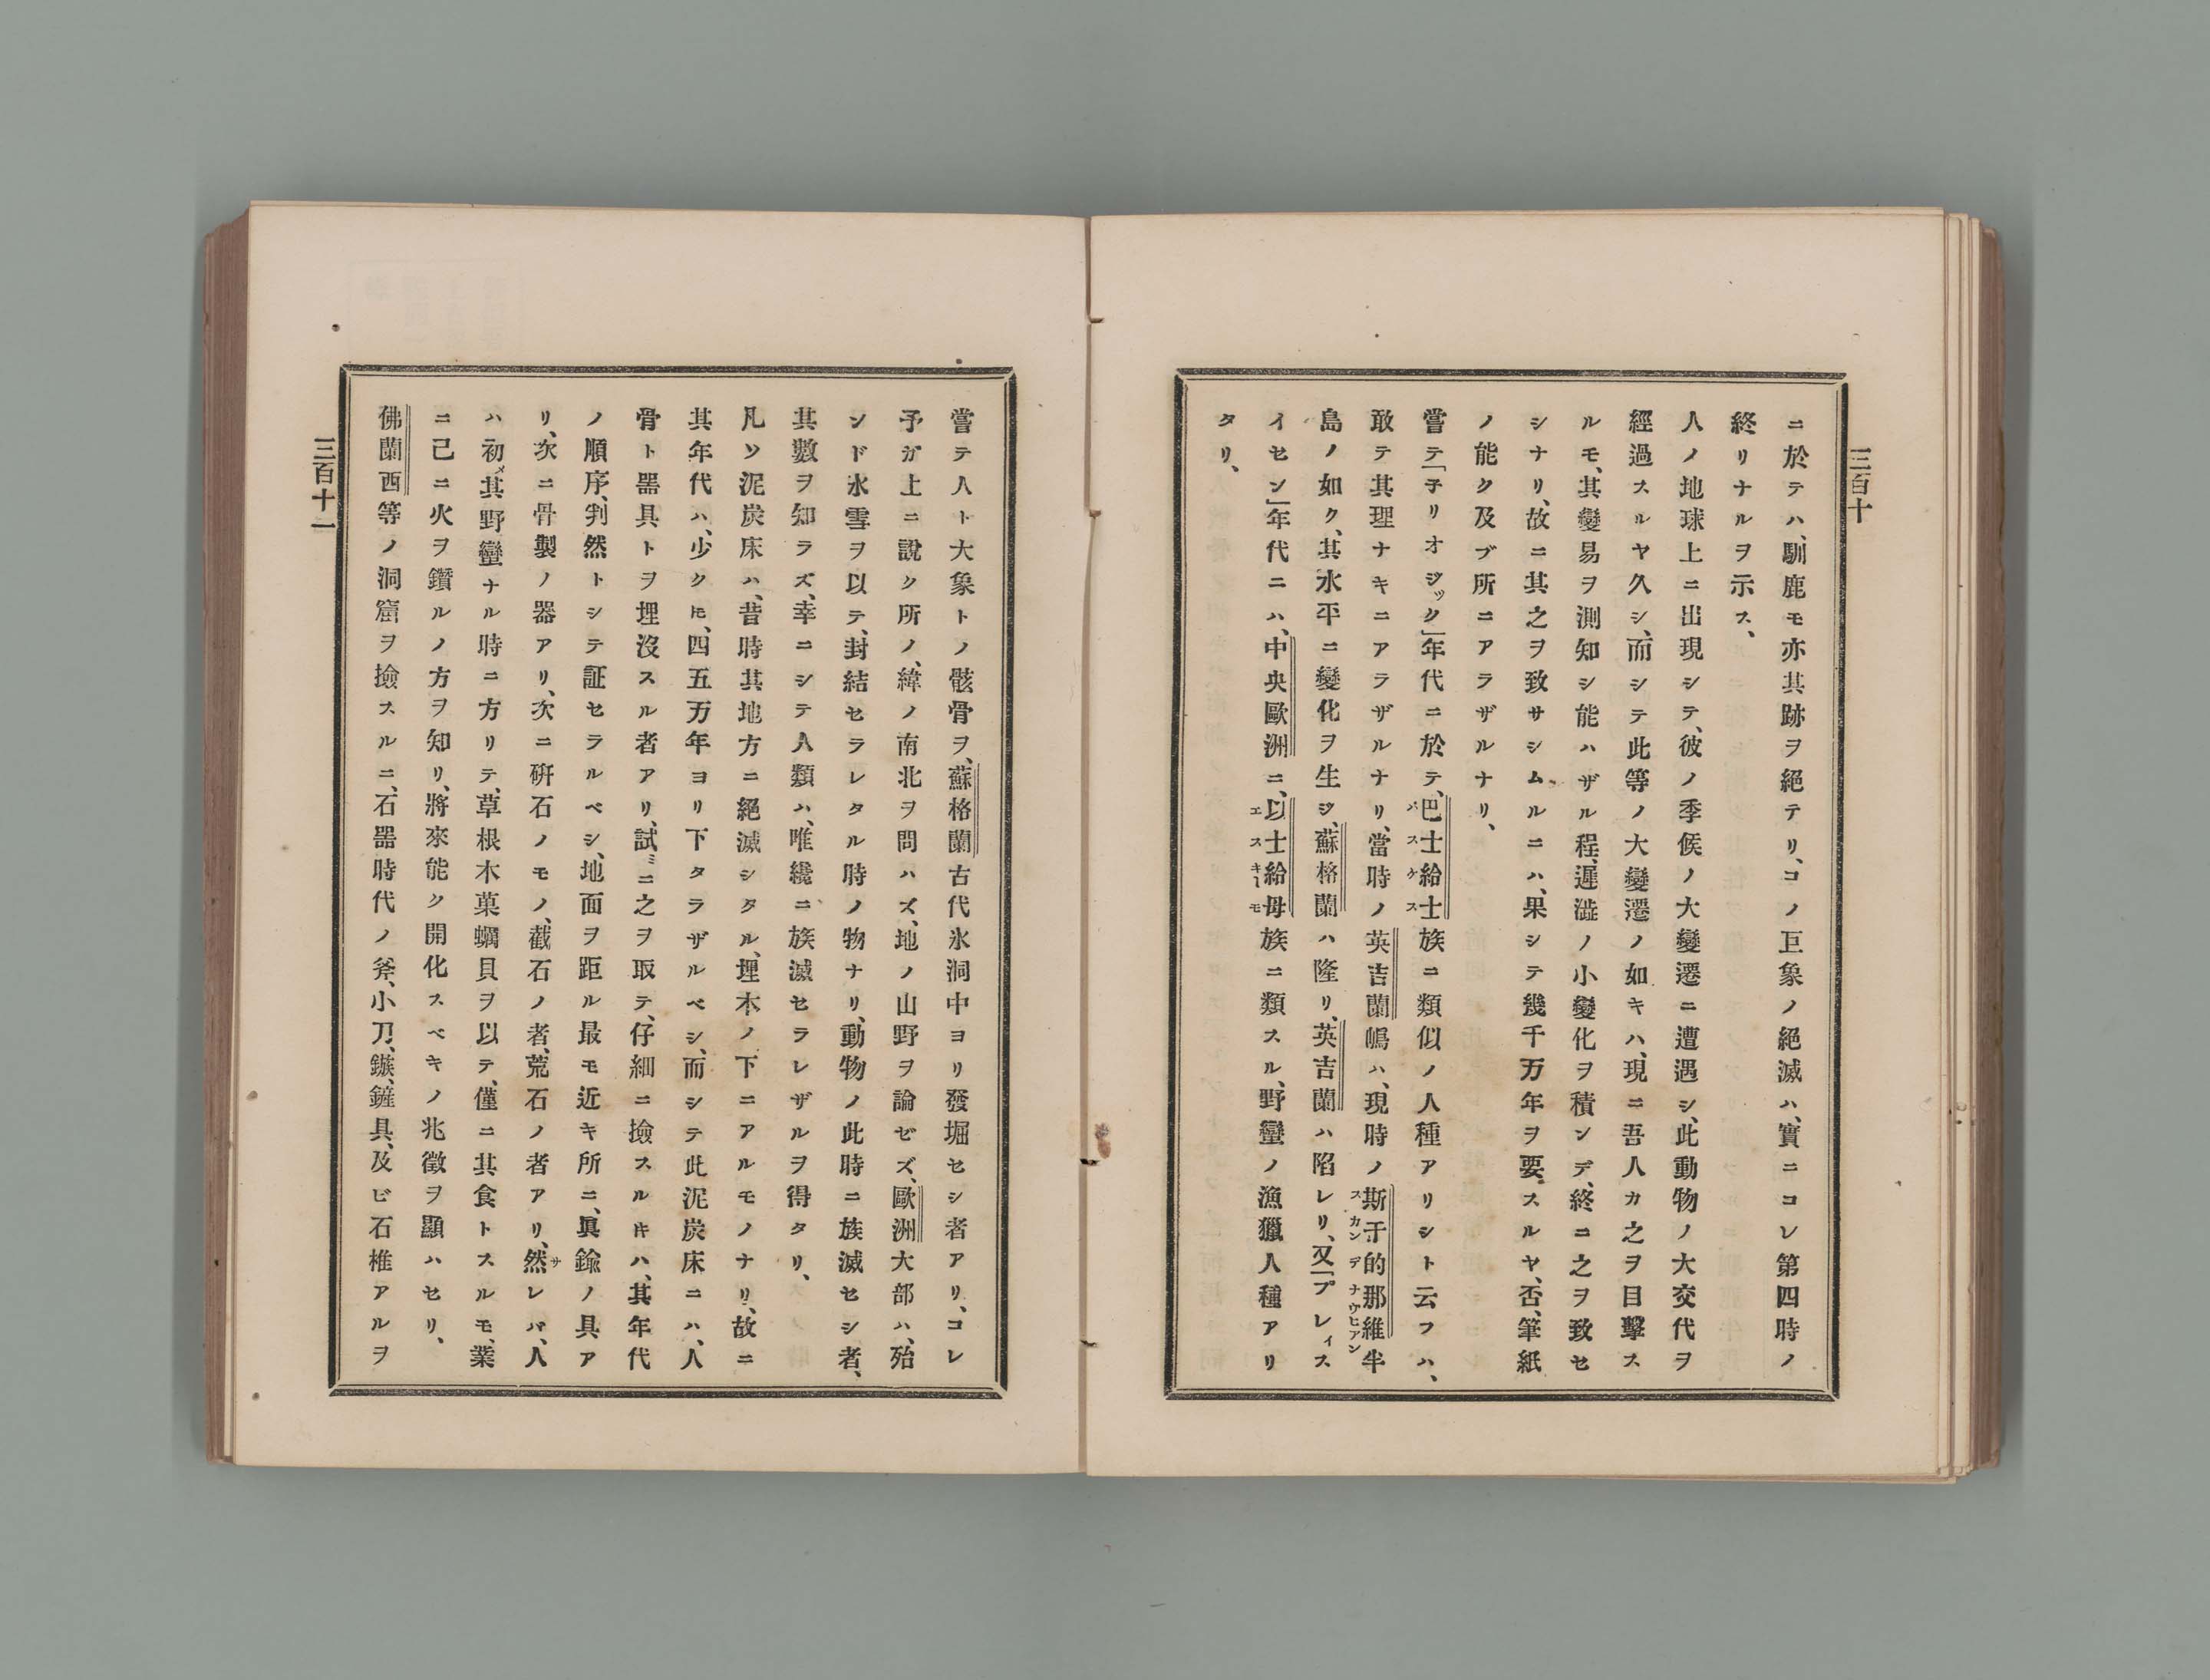 三百十
ニ於テハ、馴鹿モ亦其跡ヲ絕テリ、コノ巨象ノ絕滅ハ、實ニコレ第四時ノ
終リナルヲ示ス、
人ノ地球上ニ出現シテ、彼ノ季候ノ大變遷ニ遭遇シ、此動物ノ大交代ヲ
經過スルヤ久シ、而シテ此等ノ大變遷ノ如キハ、現ニ吾人カ之ヲ目擊ス
ルモ、其變易ヲ測知シ能ハザル程、遲澁ノ小變化ヲ積ンデ、終ニ之ヲ致セ
シナリ、故ニ其之ヲ致サシムルニハ、果シテ幾千万年ヲ要スルヤ、否、筆紙
ノ能ク及ブ所ニアラザルナリ、
嘗テ「子リオジック」年代ニ於テ、巴士給士族ニ類似ノ人種アリシト云フハ、
敢テ其理ナキニアラザルナリ、當時ノ英吉蘭嶋ハ、現時ノ斯于的那維半
島ノ如ク、其水平ニ變化ヲ生ジ、蘇格蘭ハ隆リ、英吉蘭ハ陷レリ、又「プレイス
イセン」年代ニハ、中央歐洲ニ、以士給母族ニ類スル、野蠻ノ漁獵人種アリ
タリ、
嘗テ人ト大象トノ骸骨ヲ、蘇格蘭古代氷洞中ヨリ發堀セシ者アリ、コレ
予ガ上ニ說ク所ノ、緯ノ南北ヲ問ハズ、地ノ山野ヲ論ゼズ、歐洲大部ハ、殆
ンド氷雪ヲ以テ、封結セラレタル時ノ物ナリ、動物ノ此時ニ族滅セシ者、
其數ヲ知ラズ、幸ニシテ人類ハ、唯纔ニ族滅セラレザルヲ得タリ、
凡ソ泥炭床ハ、昔時其地方ニ絕滅シタル、埋木ノ下ニアルモノナリ、故ニ
其年代ハ、少クヒ、四五万年ヨリ下タラザルベシ、而シテ此泥炭床ニハ、人
骨ト器具トヲ埋沒スル者アリ、試ミニ之ヲ取テ、仔細ニ撿スルキハ、其年代
ノ順序、判然トシテ証セラルベシ、地面ヲ距ル最モ近キ所ニ、眞鍮ノ具ア
リ、次ニ骨製ノ器アリ、次ニ硏石ノモノ、截石ノ者、荒石ノ者アリ、然レバ、人
ハ初メ其野蠻ナル時ニ方リテ、草根木菓蠣貝ヲ以テ、僅ニ其食トスルモ、業
ニ已ニ火ヲ鑽ルノ方ヲ知リ、將來能ク開化スベキノ兆徵ヲ顯ハセリ、
佛蘭西等ノ洞窟ヲ撿スルニ、石器時代ノ斧、小刀、鏃、鏟具、及ビ石椎アルヲ
三百十一